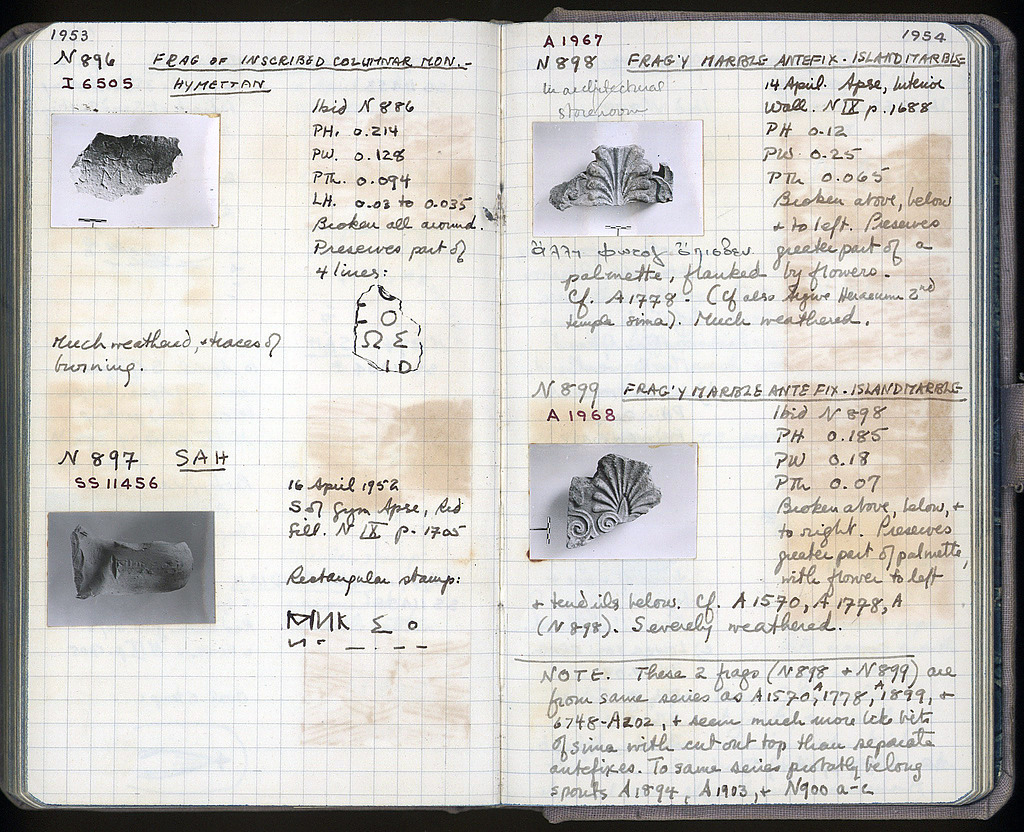 1953
N 896 FRAG OF INSCRIBED COLUMNAR MON.-
I 6505 HYMETTAN
Ibid N 886
PH. 0.214
PW. 0.128
PTh. 0.094
LH. 0.03 to 0.035
Broken all around.
Preserves part of
4 lines:
Ο
Ω Σ
Ι D
Much weathered, + traces of
burning.
N 897 SAH
SS 11456
16 April 1952
S of Gym Apse, Red
fill. N IX p. 1705
Rectangular stamp:
Σ ο
1954
A 1967
N 898 FRAG'Y MARBLE ANTEFIX - ISLAND MARBLE
In architectural
storeroom
14 April. Apse, Interior
Wall. N IX p. 1688
PH 0.12
PW 0.25
PTh 0.065
Broken above, below
+ to left. Preserves
greater part of a
palmette, flanked by flowers.
Cf. A 1778 - (Cf also Argive Heraeum 2nd
temple sima). Much weathered.
N 899 FRAG'Y MARBLE ANTEFIX - ISLAND MARBLE
A 1968
Ibid N 898
PH 0.185
PW 0.18
PTh 0.07
Broken above, below, +
to right. Preserves
greater part of palmette,
with flower to left
+ tendrils below. Cf. A 1570, A 1778, A
(N 898). Severely weathered.
NOTE. These 2 frags (N 898 + N 899) are
from same series as A 1570, A 1778, A 1899, +
6748-A202, + seem much more like bits
of sima with cut out top than separate
antefixes. To same series probably belong
spouts A 1894, A 1903, + N 900 a-c